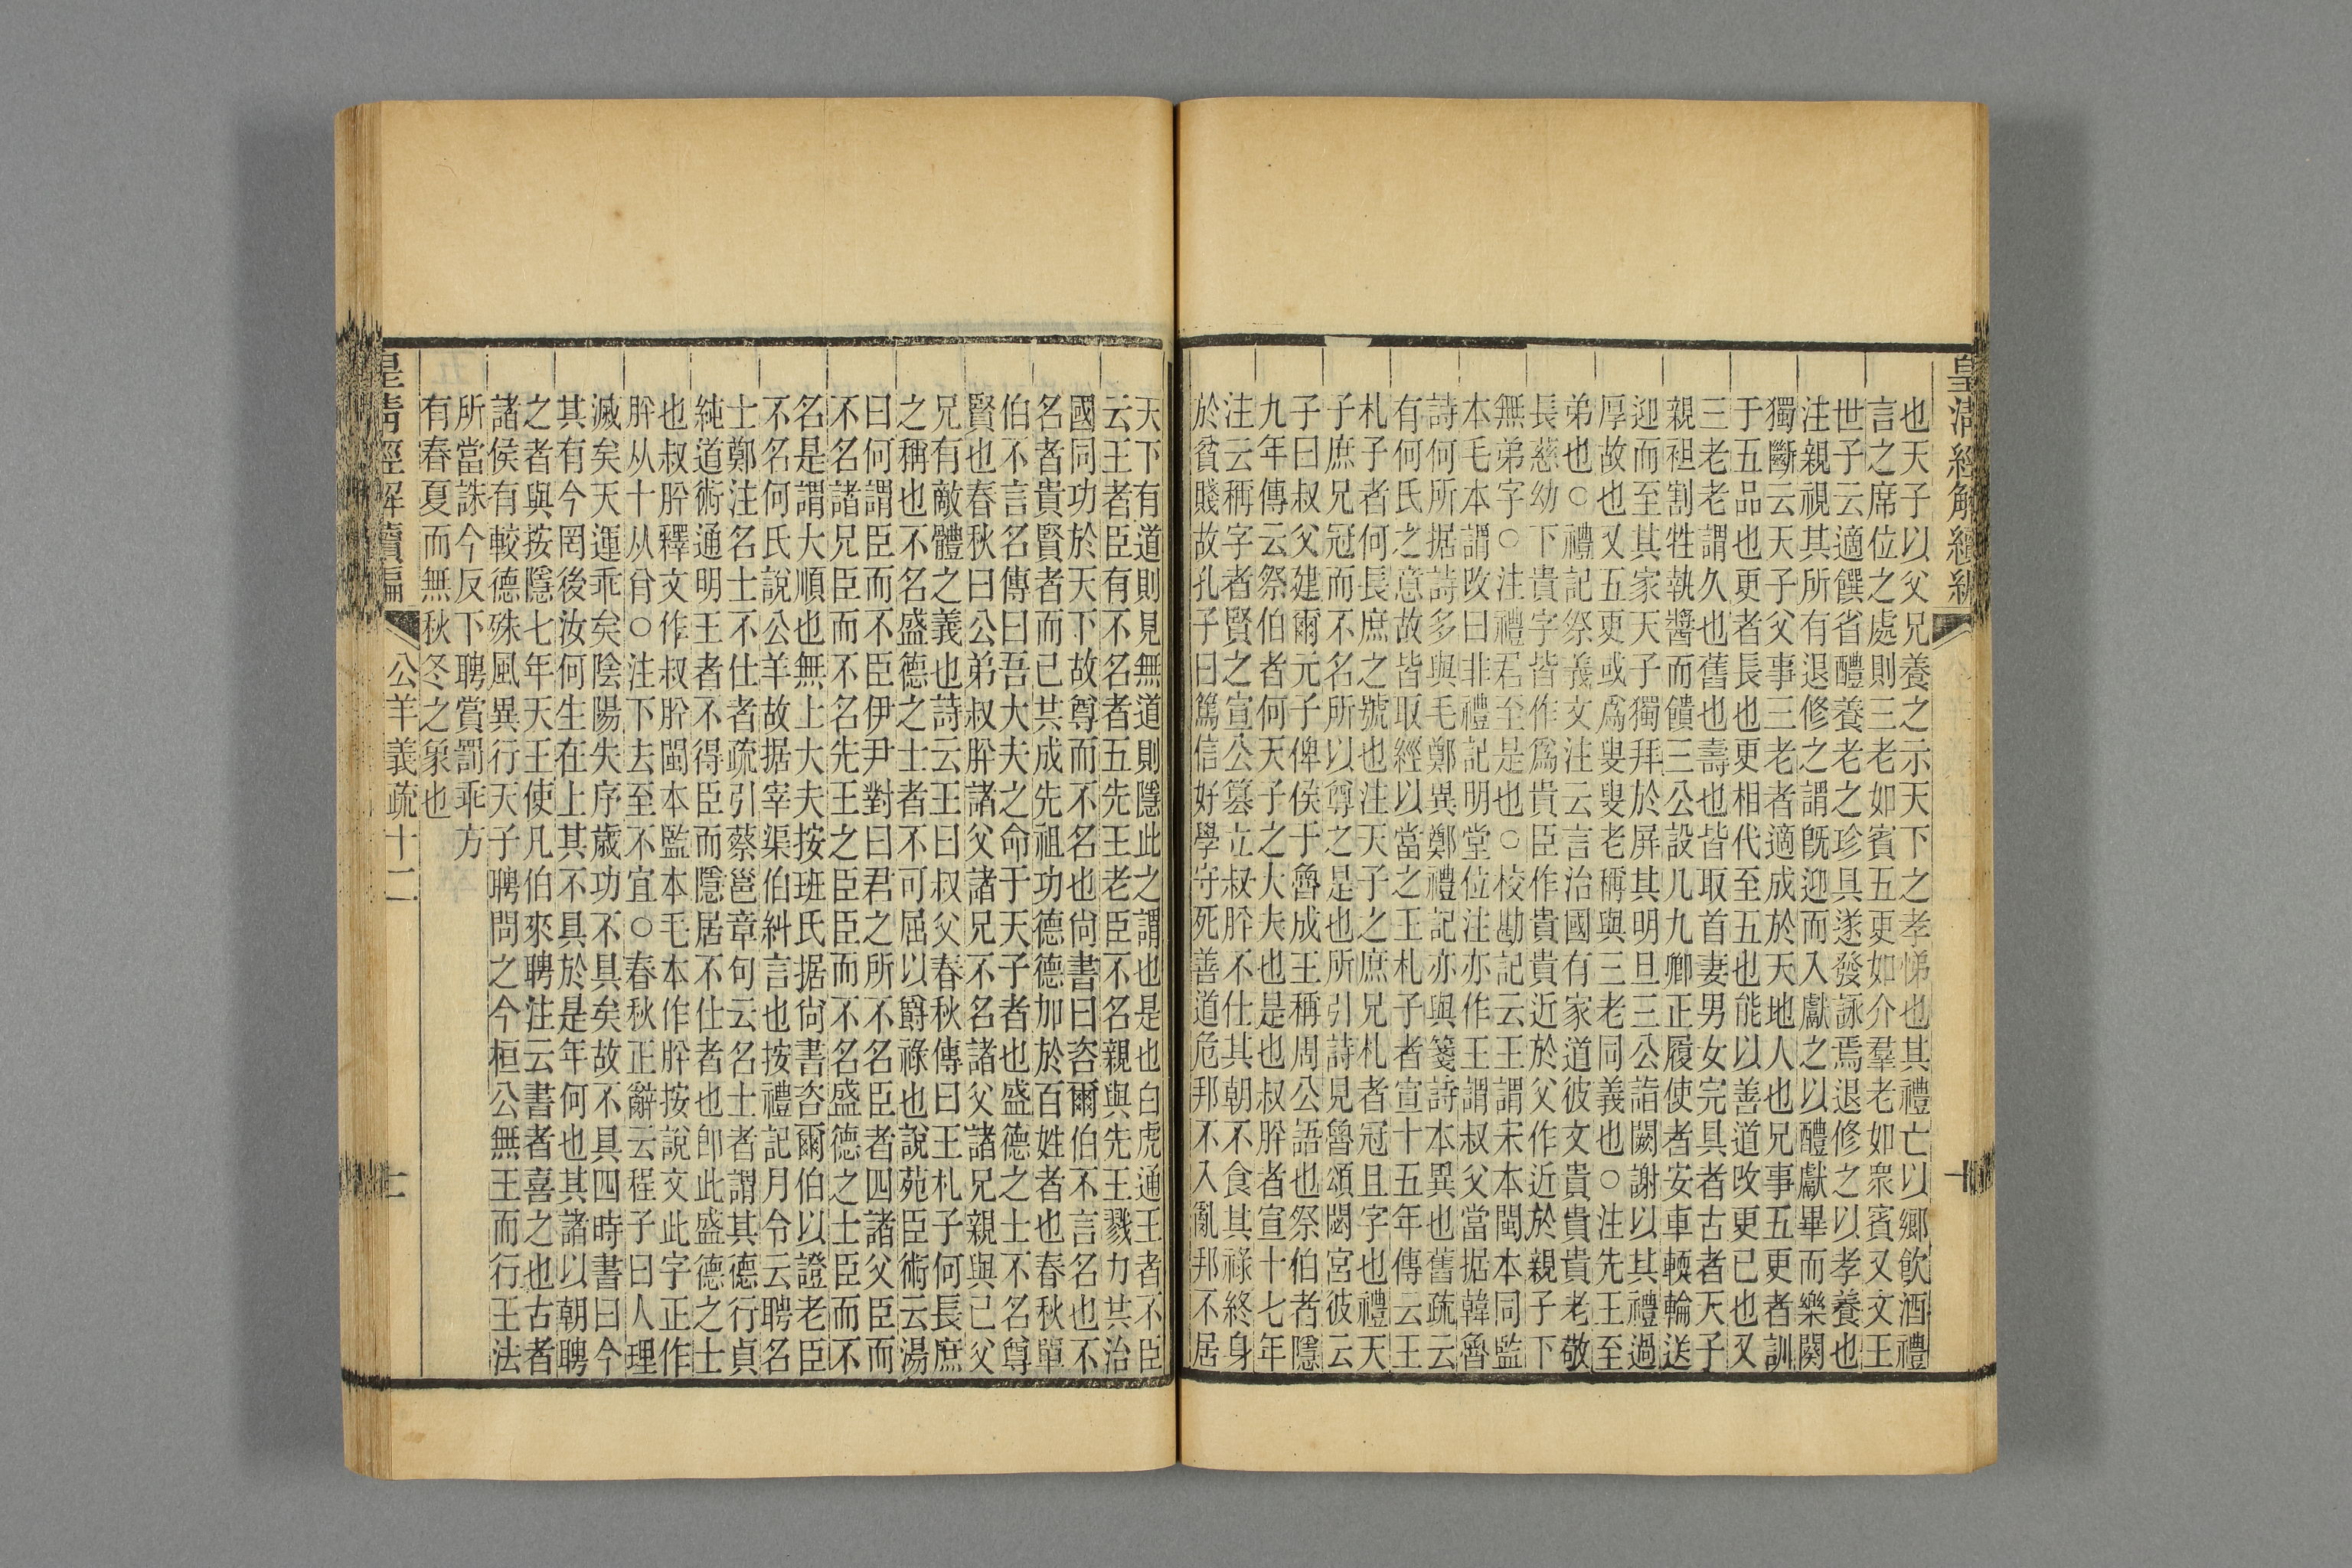 皇清經解續編
十
也天子以父兄養之示天下之孝悌也其禮亡以鄉飲酒禮
言之席位之處則三老如賓五更如介羣老如眾賓又文王
世子云適饌省醴養老之珍具遂發詠焉退修之以孝養也
注親視其所有退修之謂既迎而入獻之以醴獻畢而樂闋
獨斷云天子父事三老者適成於天地人也兄事五更者訓
于五品也更者長也更相代至五也能以善道改更已也又
三老老謂久也舊也壽也皆取首妻男女完具者古者天子
親袒割牲執醬而饋三公設几九卿正履使者安車輭輪送
迎而至其家天子獨拜於屏其明旦三公詣闕謝以其禮過
厚故也又五更或爲叟叟老稱與三老同義也○注先王至
弟也○禮記祭義文注云言治國有家道彼文貴貴貴老敬
長慈幼下貴字皆作爲貴臣作貴貴近於父作近於親子下
無弟字○注禮君至是也○校勘記云王謂宋本閩本同監
本毛本謂改曰非禮記明堂位注亦作王謂叔父當据韓魯
詩何所据詩多與毛鄭異鄭禮記亦與箋詩本異也舊疏云
有何氏之意故皆取經以當之王札子者宣十五年傳云王
札子者何長庶之號也注天子之庶兄札者冠且字也禮天
子庶兄冠而不名所以尊之是也所引詩見魯頌閟宮彼云
子曰叔父建爾元子俾侯于魯成王稱周公語也祭伯者隱
九年傳云祭伯者何天子之大夫也是也叔肸者宣十七年
注云稱字者賢之宣公篡立叔肸不仕其朝不食其祿終身
於貧賤故孔子曰篤信好學守死善道危邦不入亂邦不居
天下有道則見無道則隱此之謂也是也白虎通王者不臣
云王者臣有不名者五先王老臣不名親與先王戮力共治
國同功於天下故尊而不名也尙書曰咨爾伯不言名也不
名者貴賢者而已共成先祖功德德加於百姓者也春秋單
伯不言名傳曰吾大夫之命于天子者也盛德之士不名尊
賢也春秋曰公弟叔肸諸父諸兄不名諸父諸兄親與已父
兄有敵體之義也詩云王曰叔父春秋傳曰王札子何長庶
之稱也不名盛德之士者不可屈以爵祿也說苑臣術云湯
曰何謂臣而不臣伊尹對曰君之所不名臣者四諸父臣而
不名諸兄臣而不名先王之臣臣而不名盛德之士臣而不
名是謂大順也無上大夫按班氏据尙書咨爾伯以證老臣
不名何氏說公羊故据宰渠伯糾言也按禮記月令云聘名
士鄭注名士不仕者疏引蔡邕章句云名士者謂其德行貞
純道術通明王者不得臣而隱居不仕者也卽此盛德之士
也叔肸釋文作叔肸閩本監本毛本作肸按說文此字正作
肸从十从㕣○注下去至不宜○春秋正辭云程子曰人理
滅矣天運乖矣陰陽失序歲功不具矣故不具四時書曰今
其有今罔後汝何生在上其不具於是年何也其諸以朝聘
之者與按隱七年天王使凡伯來聘注云書者喜之也古者
諸侯有較德殊風異行天子聘問之今桓公無王而行王法
所當誅今反下聘賞罰乖方
有春夏而無秋冬之象也
皇清經解續編
公羊義疏十二